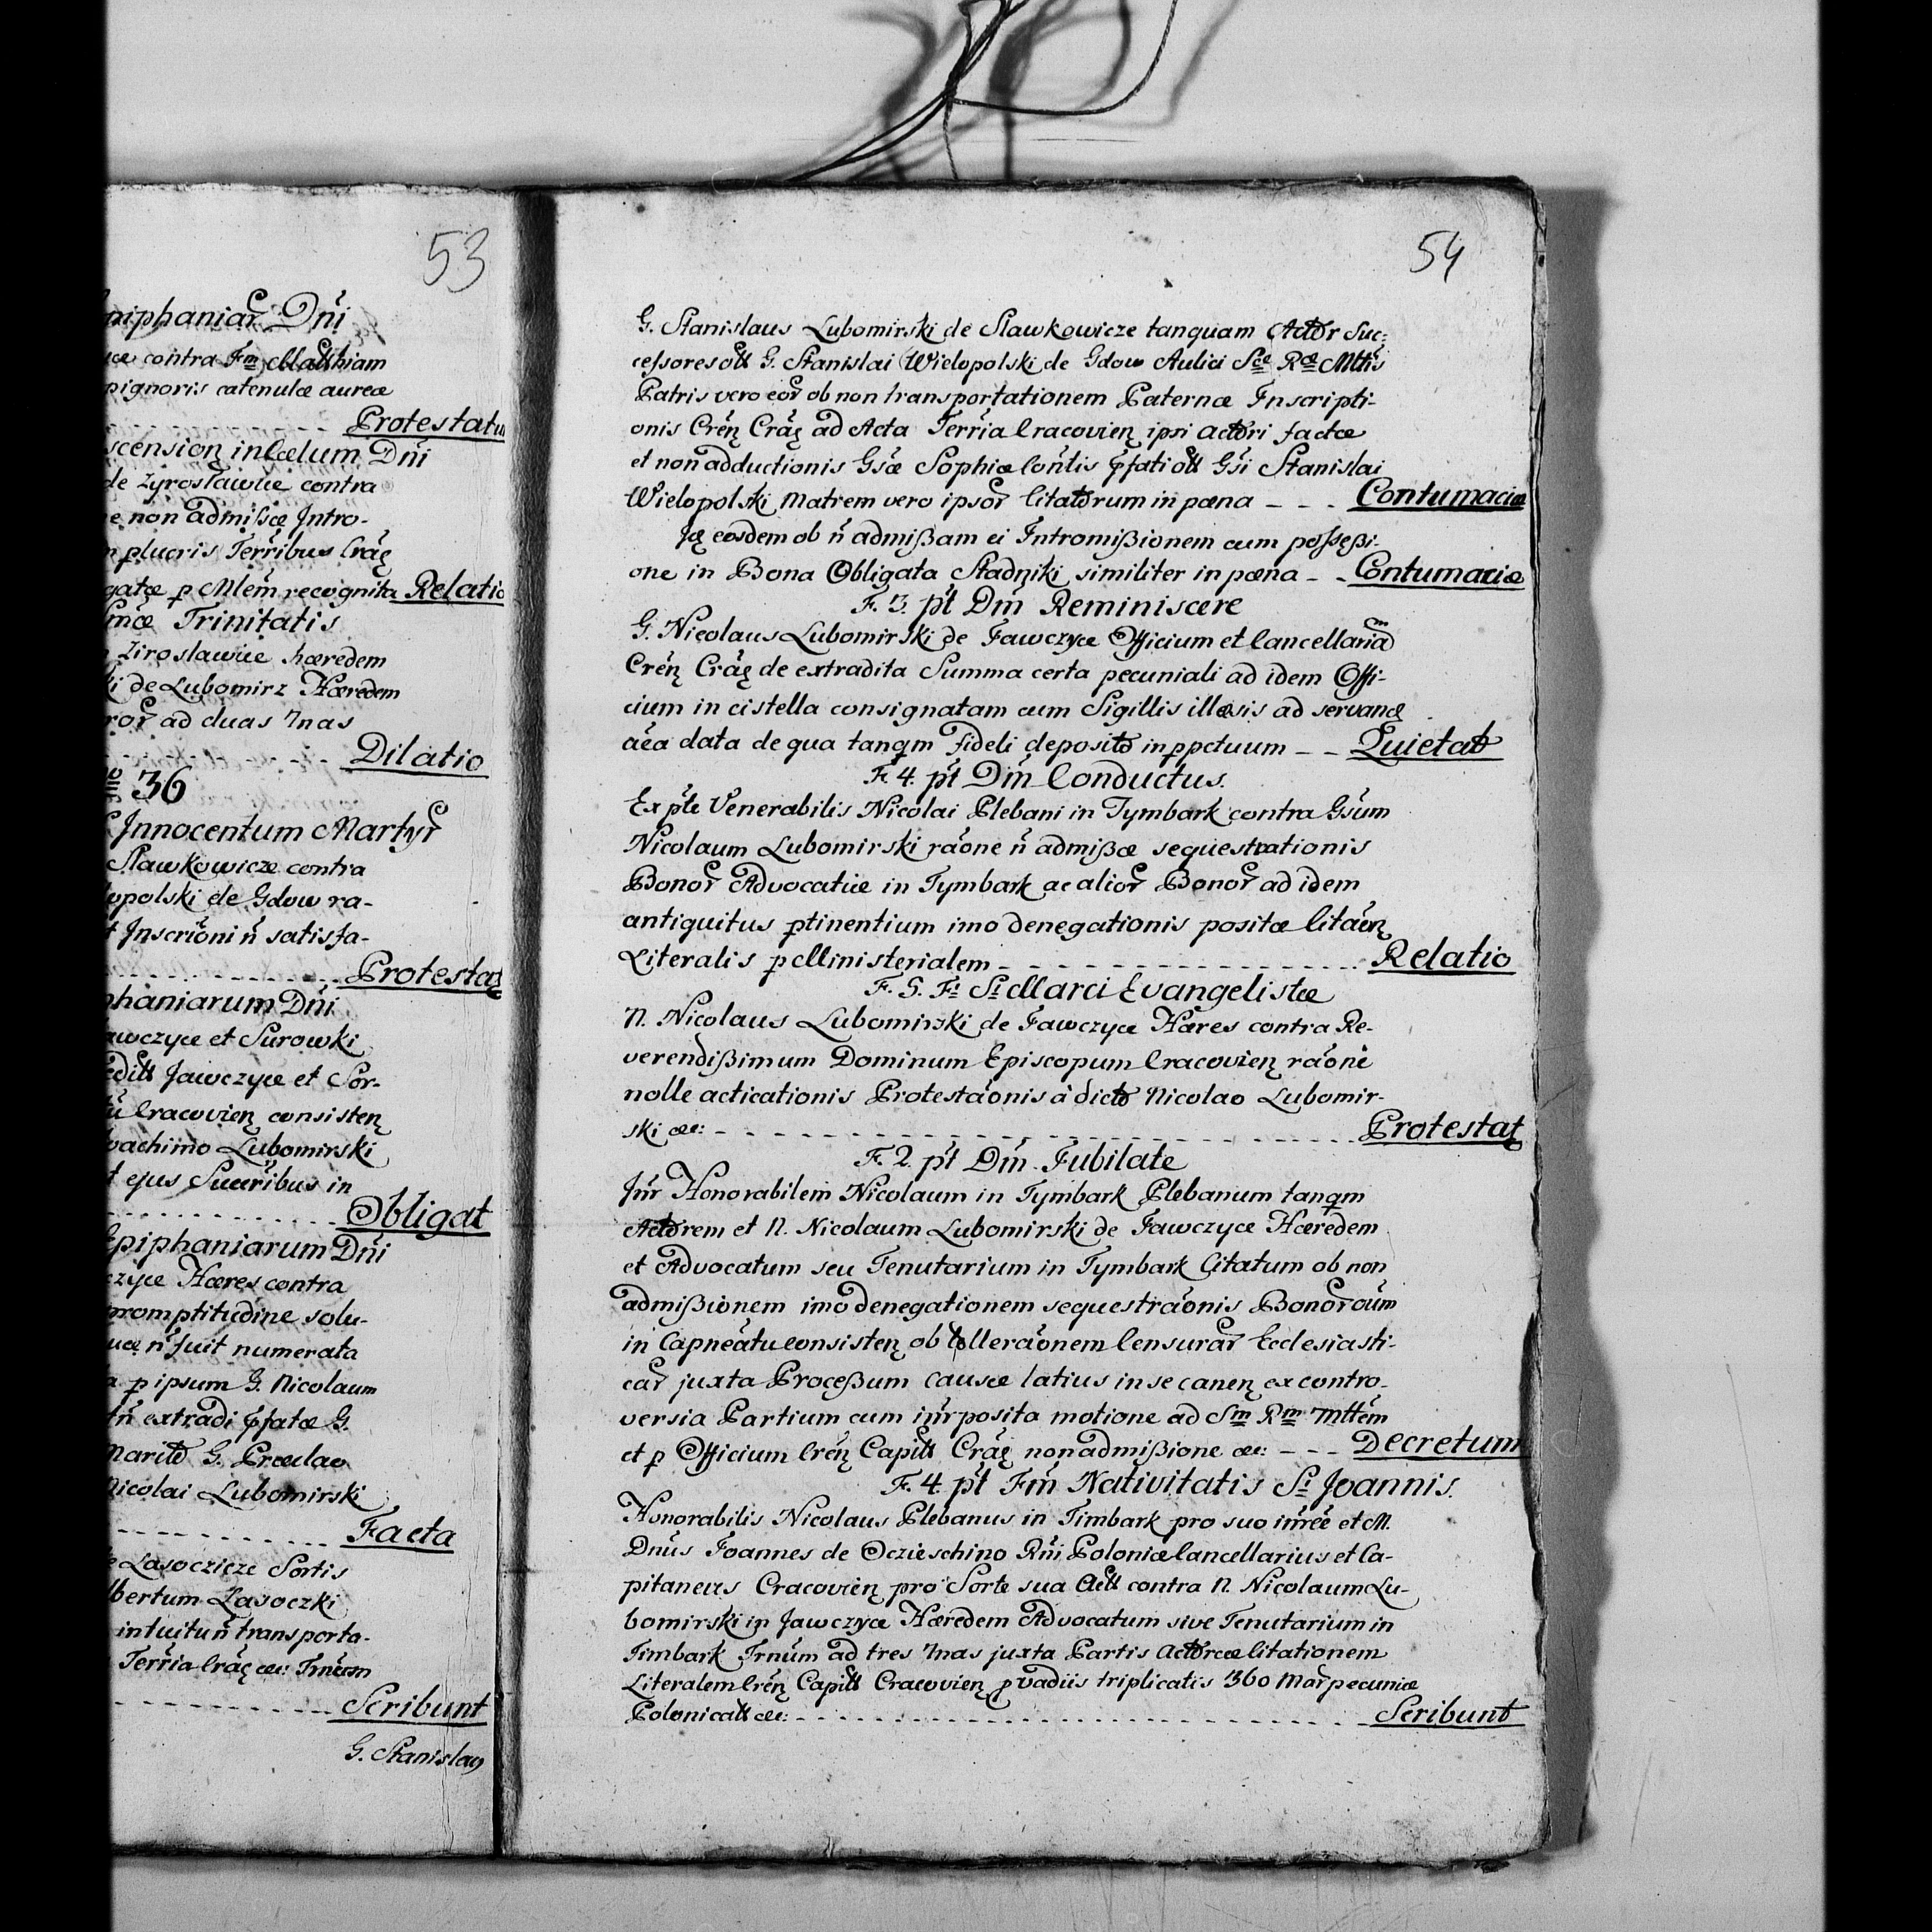 53
Epiphaniar̃ Dñi
contra Fm Matthiam
pignoris catenulæ aureæ
Protestatu
scension in Cœlum Dñi
de Zyrosławice contra
non admissæ Intro-
plucris Terribus Crac̨
gatæ p Mlem recognita Relatio
Trinitatis
Ziroslawice hæredem
ki de Lubomirz Hæredem
ad duas 7nas
Dilatio
36
Innocentum Martyr̃
Slawkowicze contra
lopolski de Gdow ra-
Inscrõni ñ satisfa-
Protestat
phaniarum Dñi
awczyce et Surowki
edit Jawczyce et Sor-
Cracovień consisteń
oachimo Lubomirski
t ejus Succribus in
Obligat
Epiphaniarum Dñi
czyce Hæres contra
promptitudine solu-
uæ ñ fuit numerata
a p ipsum G. Nicolaum
extradi pfatæ G.
Marito G. Præclao
Nicolai Lubomirski
Facta
Lasoczicze Sortis
lbertum Lasoczki
intuitu ñ transporta-
Terria Crac̨ &c: Trnum
Scribunt
G. Stanislaų
54
G. Stanislaus Lubomirski de Slawkowicze tanquam Actor Suc=
cessores olt G. Stanislai Wielopolski de Gdow Aulici Sæ Ræ Mttis
Patris vero eor̃ ob non transportationem Paternæ Inscripti-
onis Creń Crac̨ ad Acta Terria Cracovień ipsi actori factæ
et non adductionis Gsæ Sophiæ Contis pfati olt Gsi Stanislai
Wielopolski Matrem vero ipsor̃ Citatorum in pæna - - - Contumaciæ
Ję eosdem ob ñ admißam ei Intromißionem cum posseßi-
one in Bona Obligata Stadniki similiter in pæna - - Contumaciæ
F. 3. pt Dm Reminiscere
G. Nicolaus Lubomirski de Jawczyce Officium et Cancellariam
Creń Crac̨ de extradita Summa certa pecuniali ad idem Offi-
cium in cistella consignatam cum Sigillis illæsis ad servand̨
aća data de qua tanqm fideli deposito in ppetuum - - Quietat
F. 4. pt Dm Conductus.
Ex pte Venerabilis Nicolai Plebani in Tymbark contra Gsum
Nicolaum Lubomirski raõne ñ admißæ sequestrationis
Bonor̃ Advocatiæ in Tymbark ac alior̃ Bonor̃ ad idem
antiquitus ptinentium imo denegationis positæ Citaoń
Literalis p Ministerialem - - - Relatio
F. S. Fi Si Marci Evangelistæ
N. Nicolaus Lubomirski de Jawczyce Hæres contra Re-
verendißimum Dominum Episcopum Cracovień raõne
nolle acticationis Protestaõnis à dicto Nicolao Lubomir-
ski &c: - - - Protestat
F. 2. pt Dm Jubilate
Intr Honorabilem Nicolaum in Tymbark Plebanum tanqm
Actorem et N. Nicolaum Lubomirski de Jawczyce Hæredem
et Advocatum seu Tenutarium in Tymbark Citatum ob non
admißionem imo denegationem sequestraõnis Bonor̃ oum
in Capneatu consisteń ob tolleraõnem Censurar̃ Ecclesiasti-
car̃ juxta Proceßum causæ latius in se caneń ex contro-
versia Partium cum intrposita motione ad Sm Rm Mttem
et p Officium Creń Capitt Crac̨ non admißione &c: - - - Decretum
F. 4. pt Fm Nativitatis Si Joannis.
Honorabilis Nicolaus Plebanus in Timbark pro suo intreē et M.
Dnus Joannes de Oczieschino Rñi Poloniæ Cancellarius et Ca-
pitaneus Cracovień pro Sorte sua Actt contra N. Nicolaum Lu-
bomirski in Jawczyce Hæredem Advocatum sive Tenutarium in
Timbark Trnum ad tres 7nas juxta Partis actoreæ Citationem
Literalem Creń Capitt Cracovień p vadiis triplicatis 360 Mar̃ pecuniæ
Polonicalt &c: - - - Scribunt